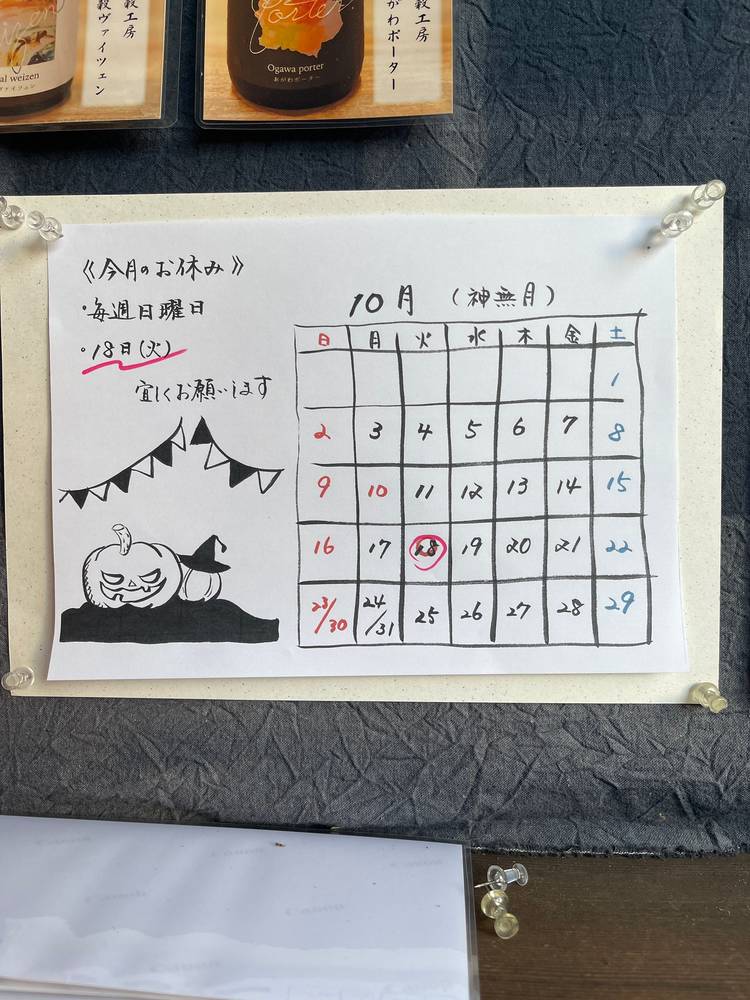 穀工房
穀ヴァイツェン
al weizen
ヴァイツェン
穀工房
がわポーター
Porter
Ogawa porter
おがわポーター
《今月のお休み》
・毎週日曜日
・18日(火)
宜しくお願いします
10月 (神無月)
日 月 火 水 木 金 土
1
2 3 4 5 6 7 8
9 10 11 12 13 14 15
16 17 18 19 20 21 22
23/30 24/31 25 26 27 28 29